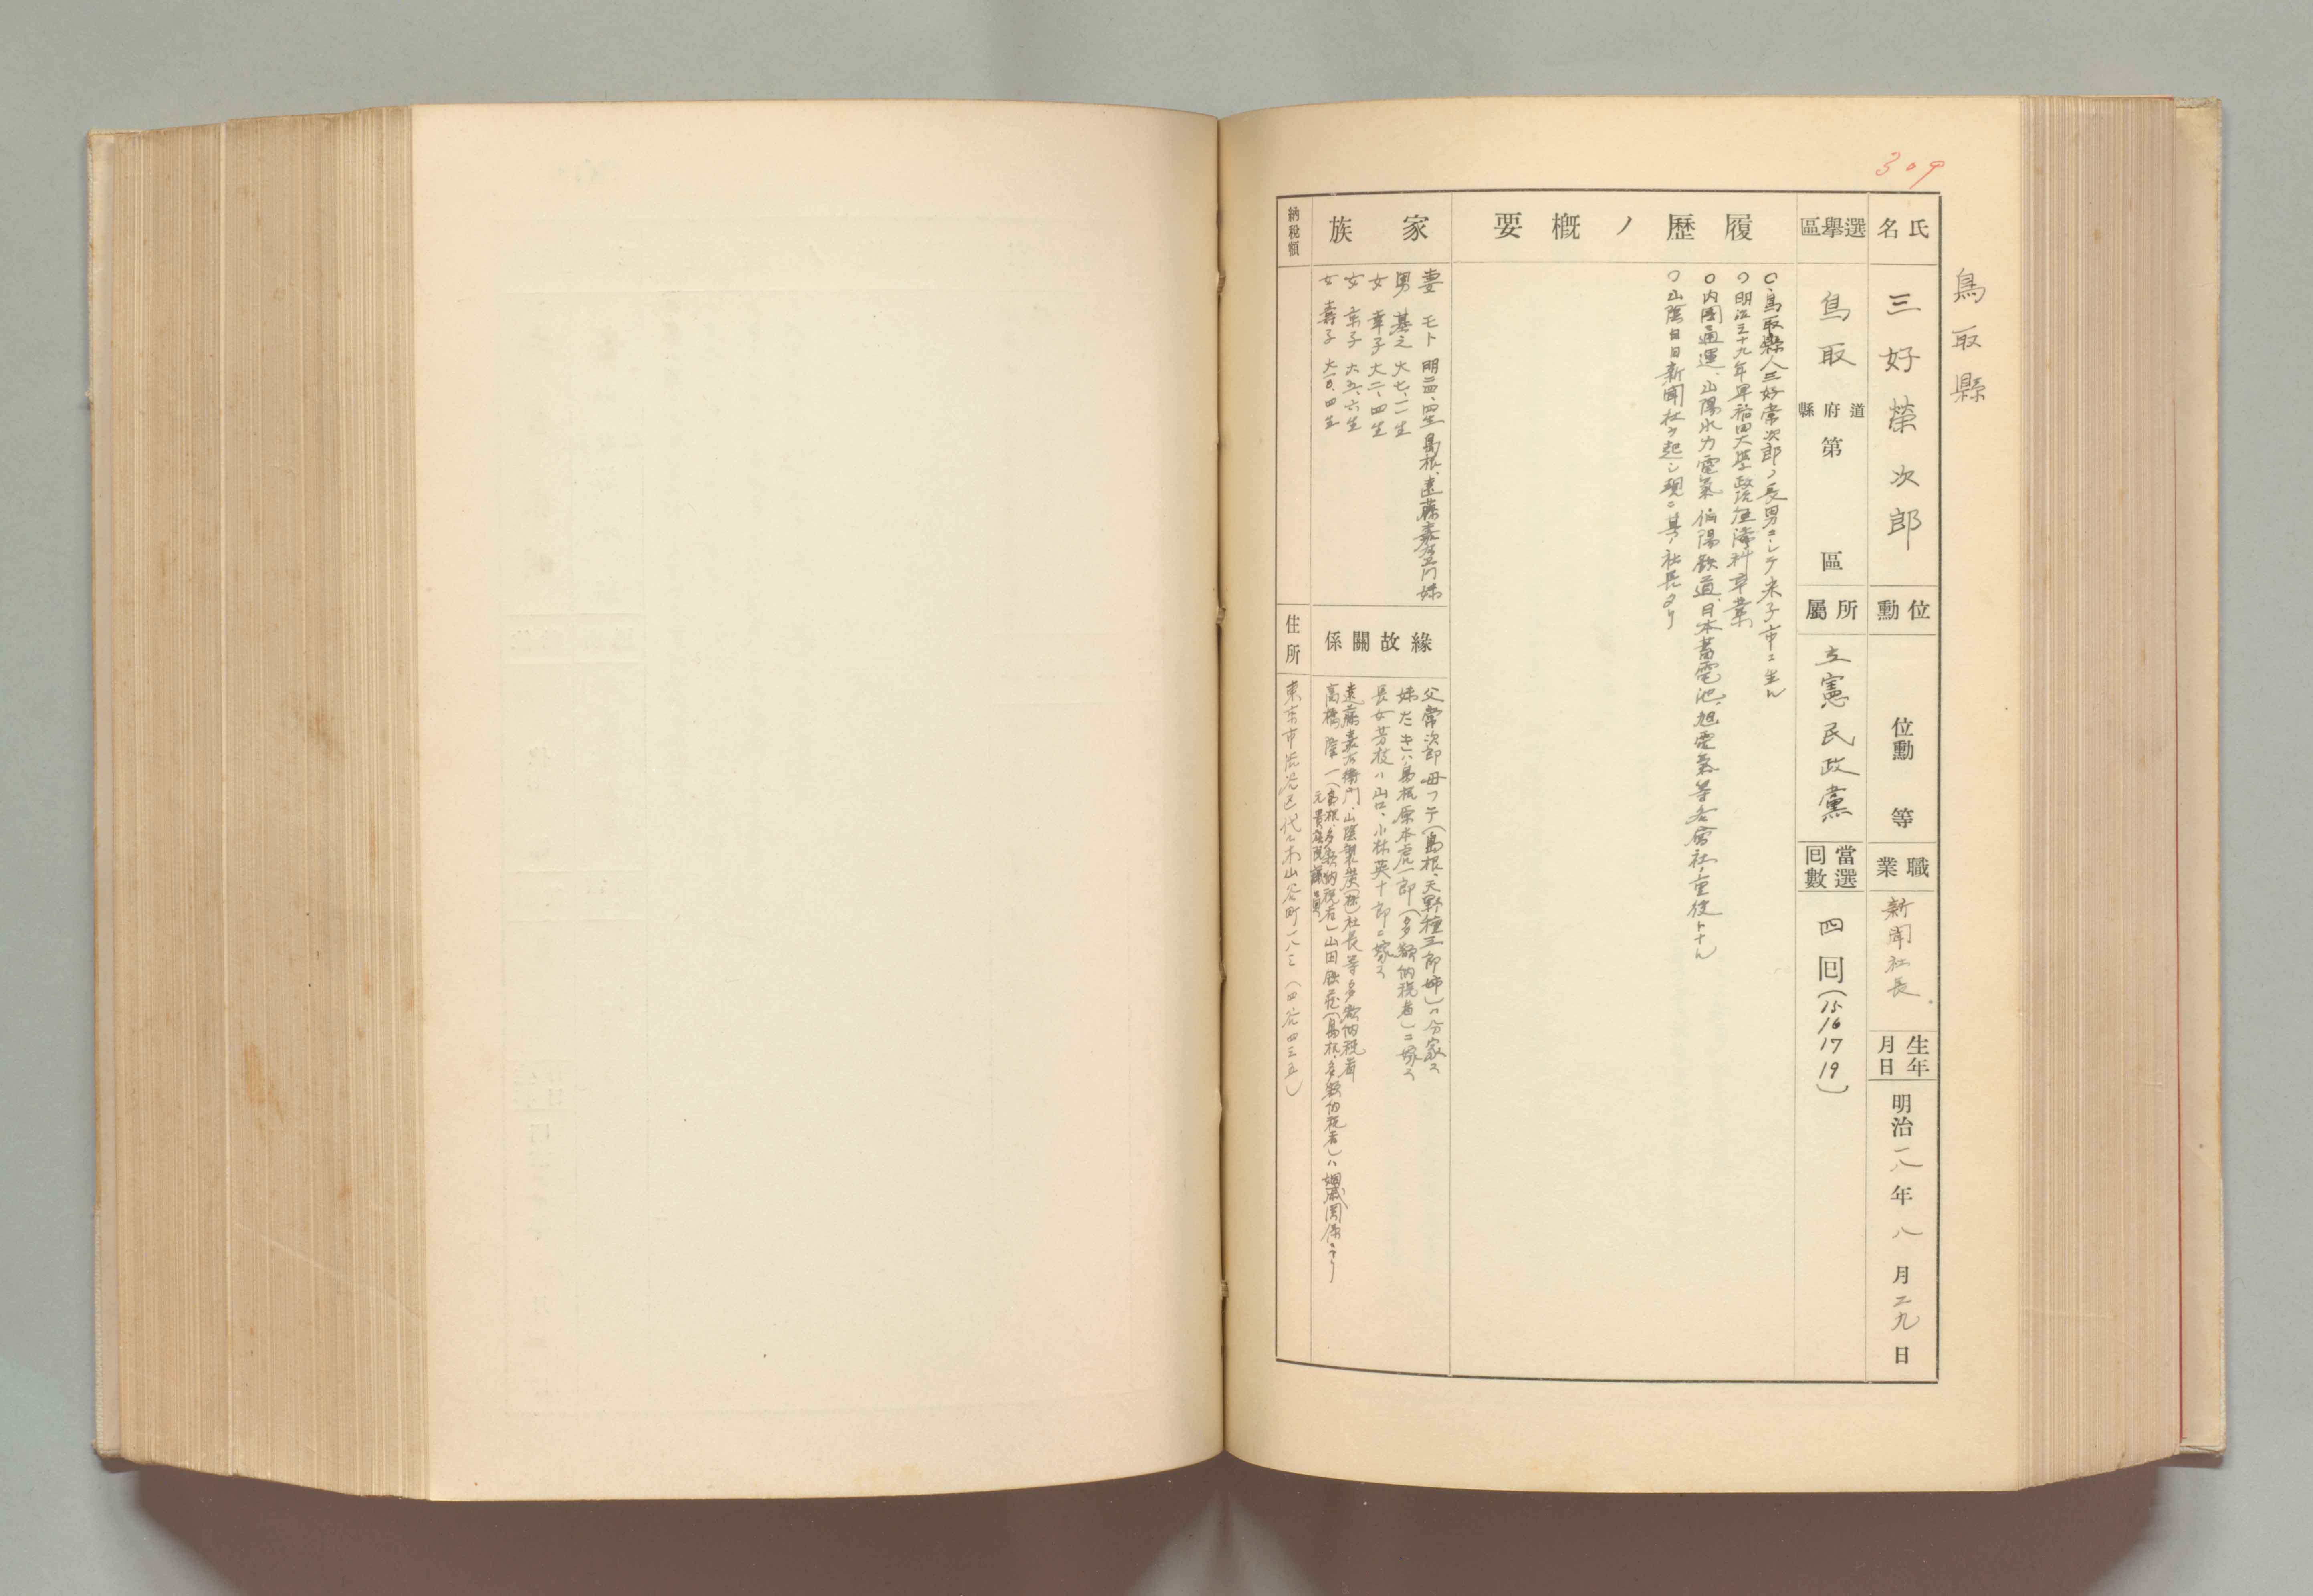 309
鳥取縣
氏名
三好榮次郎
位勲
位勲 等
職業
新聞社長
生年月日
明治一八年八月二九日
選擧區
鳥取 道府縣 第 區
所屬
立憲民政黨
當選回數
四回(15 16 17 19)
履歷ノ概要
○鳥取縣人三好常次郎ノ長男ニシテ米子市ニ生ル
○明治三十九年早稲田大學政治経済科卒業
○内國通運、山陽水力電氣、伯陽鉄道、日本蓄電池、旭電氣等各會社ノ重役トナル
○山陰日日新聞社ヲ起シ現ニ其ノ社長タリ
家族
妻 モト 明二四、四生 島根、遠藤嘉右衛門妹
男 基之 大七、一一生
女 幸子 大二、四生
女 京子 大五、六生
女 壽子 大一〇、四生
緣故關係
父常次郎母フテ(島根、天野種三郎姉)ハ分家ス
妹たきハ島根原本虎一郎(多額納税者)ニ嫁ス
長女芳枝ハ山口、小林英十郎ニ嫁ス
遠藤嘉右衛門、山陰製炭(株)社長等多額納税者
高橋隆一(島根、多額納税者
元貴族院議員)山田俶蔵(島根、多額納税者)ハ姻戚関係アリ
納稅額
住所
東京市渋谷区代々木山谷町一八三(四谷四三五)